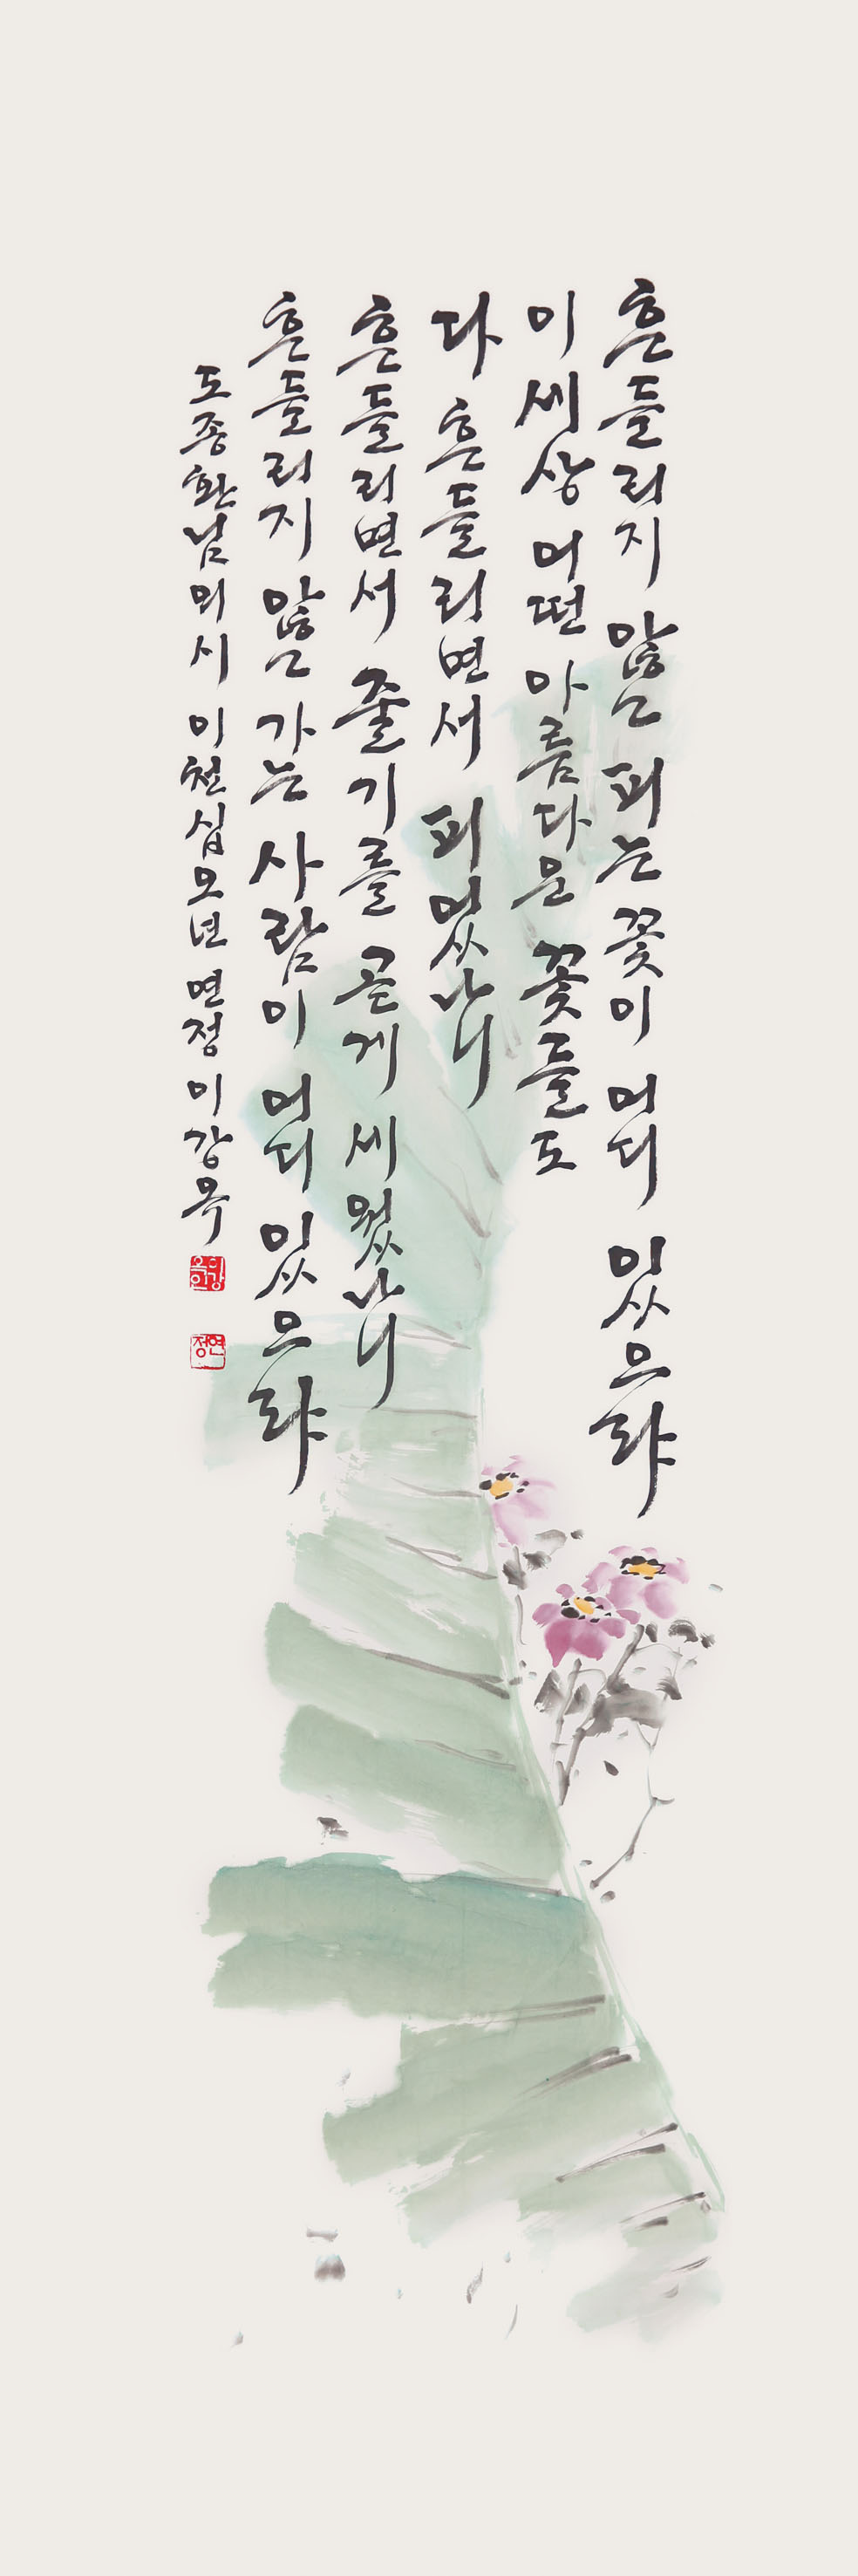 흔들리지 않고 피는 꽃이 어디 있으랴
이 세상 어떤 아름다운 꽃들도
다 흔들리면서 피었나니
흔들리면서 줄기를 곧게 세웠나니
흔들리지 않고 가는 사람이 어디 있으랴
도종환님의 시 이천십오년 연정 이강옥
이강옥인
연정